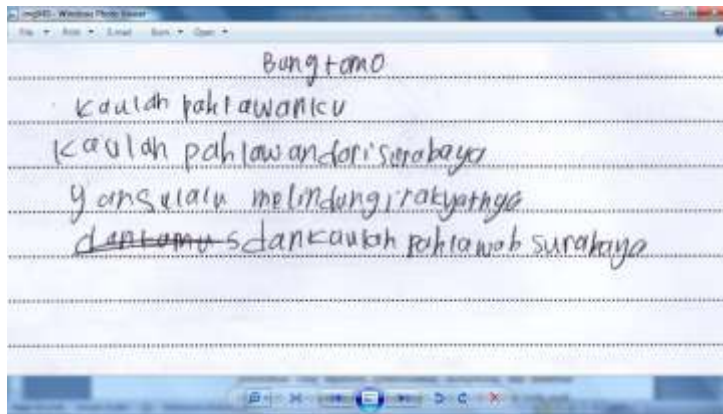 img940 - Windows Photo Viewer
File Print E-mail Burn Open
Bungtomo
Kaulah pahlawanku
Kaulah pahlawandarisurabaya
yangsulalu melindungirakyatnya
dankamu sdankaulah pahlawab surabaya